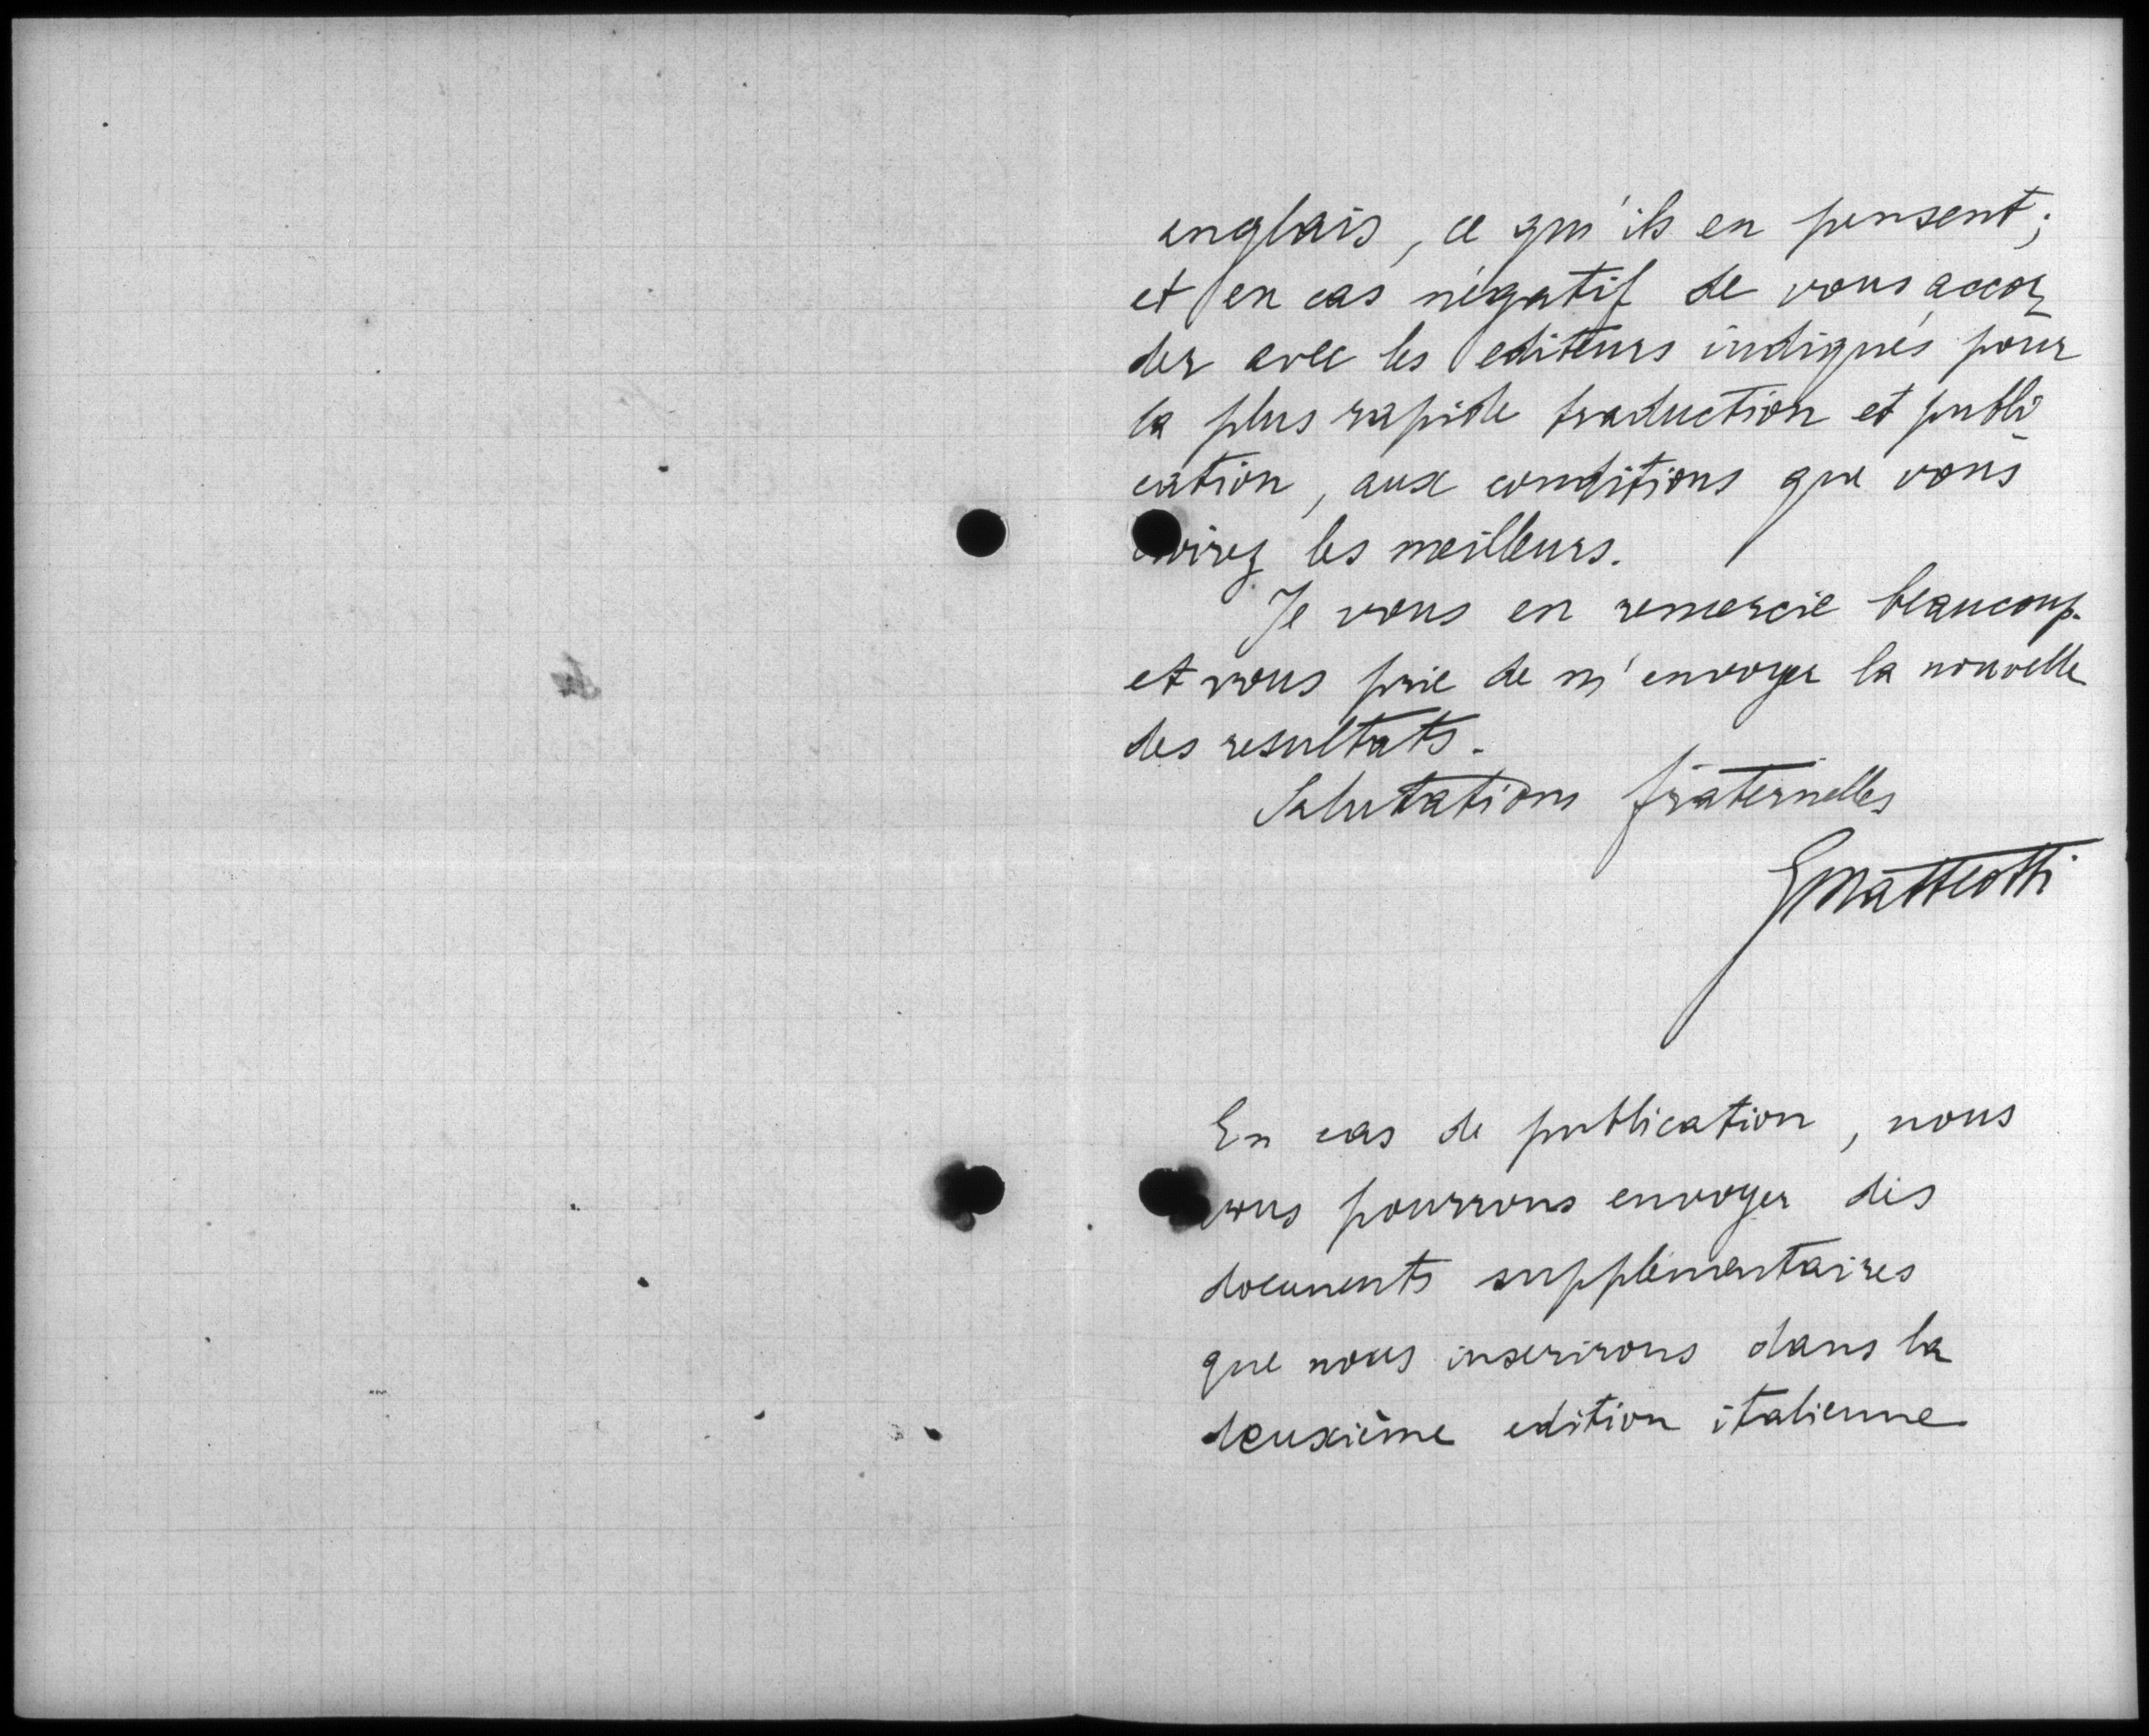 anglais, ce qu'ils en pensent;
et en cas négatif de vous accor
der avec les editeurs indiqués pour
la plus rapide traduction et publi
cation, aux conditions que vous
les meilleurs.
Je vous en remercie beaucoup.
et vous prie de m'envoyer la nouvelle
des resultats.
Salutations fraternelles
GMatteotti
En cas de publication, nous
vous pourrons envoyer des
documents supplémentaires
que nous inserirons dans la
deuxième edition italienne